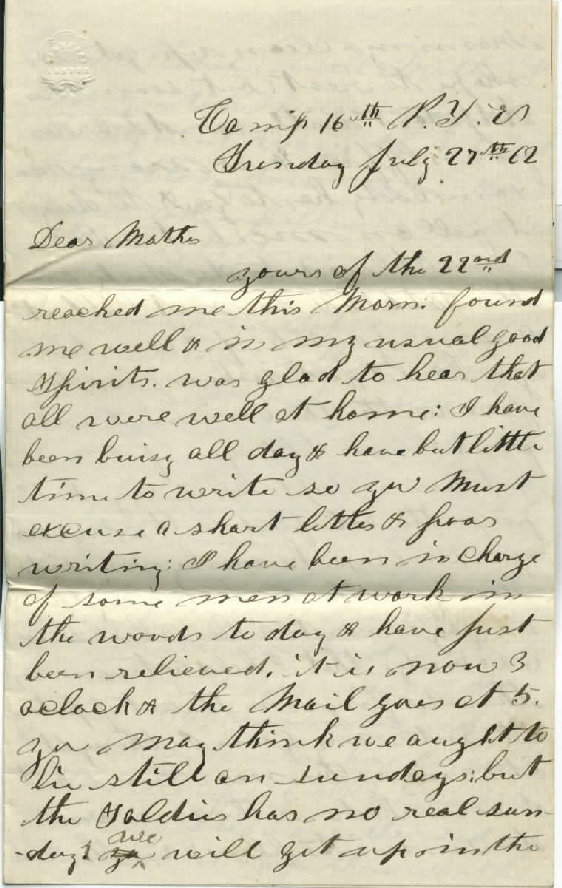 Camp 16th N.Y. V
Sunday July 27th 62
Dear Mother
yours of the 22ond
reached me this Morn: found
me well & in my usual good
Spirits. was glad to hear that
all were well at home: I have
been buisy all day & have but little
time to write so you Must
excuse a short letter & poor
writing: I have been in charge
of some men at work in
the woods to day & have just
been relieved. it is now 3
oclock & the Mail goes at 5.
you may think we aught to
lie still on sundays: but
the Soldier has no real sun-
-day! we will get up in the